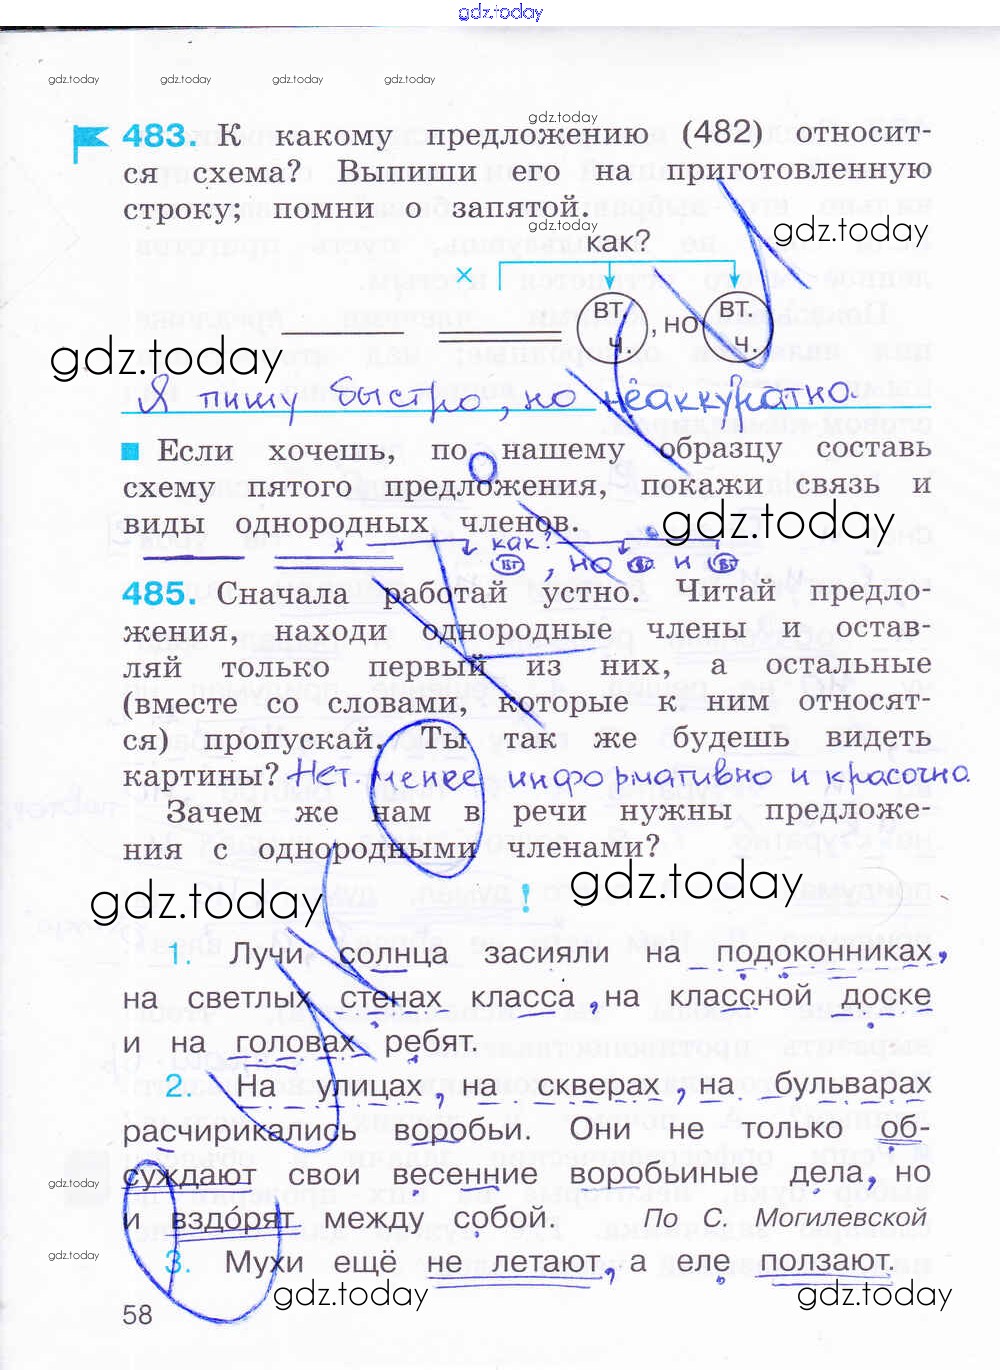 gdz.today
gdz.today gdz.today gdz.today gdz.today
gdz.today
483. К какому предложению (482) относит-
ся схема? Выпиши его на приготовленную
строку; помни о запятой.
gdz.today
gdz.today
как?
×
вт. ч. , но вт. ч.
gdz.today
Я пишу быстро, но неаккуратно.
Если хочешь, по нашему образцу составь
схему пятого предложения, покажи связь и
виды однородных членов.
gdz.today
х как?
вт , но вт и вт
485. Сначала работай устно. Читай предло-
жения, находи однородные члены и остав-
ляй только первый из них, а остальные
(вместе со словами, которые к ним относят-
ся) пропускай. Ты так же будешь видеть
картины? Нет. менее информативно и красочно.
Зачем же нам в речи нужны предложе-
ния с однородными членами?
gdz.today ! gdz.today
1. Лучи солнца засияли на подоконниках,
на светлых стенах класса, на классной доске
и на головах ребят.
2. На улицах, на скверах, на бульварах
расчирикались воробьи. Они не только об-
суждают свои весенние воробьиные дела, но
gdz.today
и вздо́рят между собой. По С. Могилевской
gdz.today
3. Мухи ещё не летают, а еле ползают.
gdz.today gdz.today
58